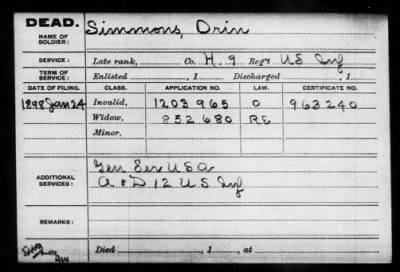 DEAD.
NAME OF SOLDIER:
Simmons, Orin
SERVICE:
Late rank, Co. H, 9 Reg't US Inf
TERM OF SERVICE:
Enlisted , 1 Discharged , 1
DATE OF FILING. CLASS. APPLICATION NO. LAW. CERTIFICATE NO.
1898 Jan 24 Invalid, 1203965 O 963240
Widow, 852680 RE
Minor,
ADDITIONAL SERVICES:
Gen Ser USA
A & D 12 US Inf
REMARKS:
Died , 1 , at